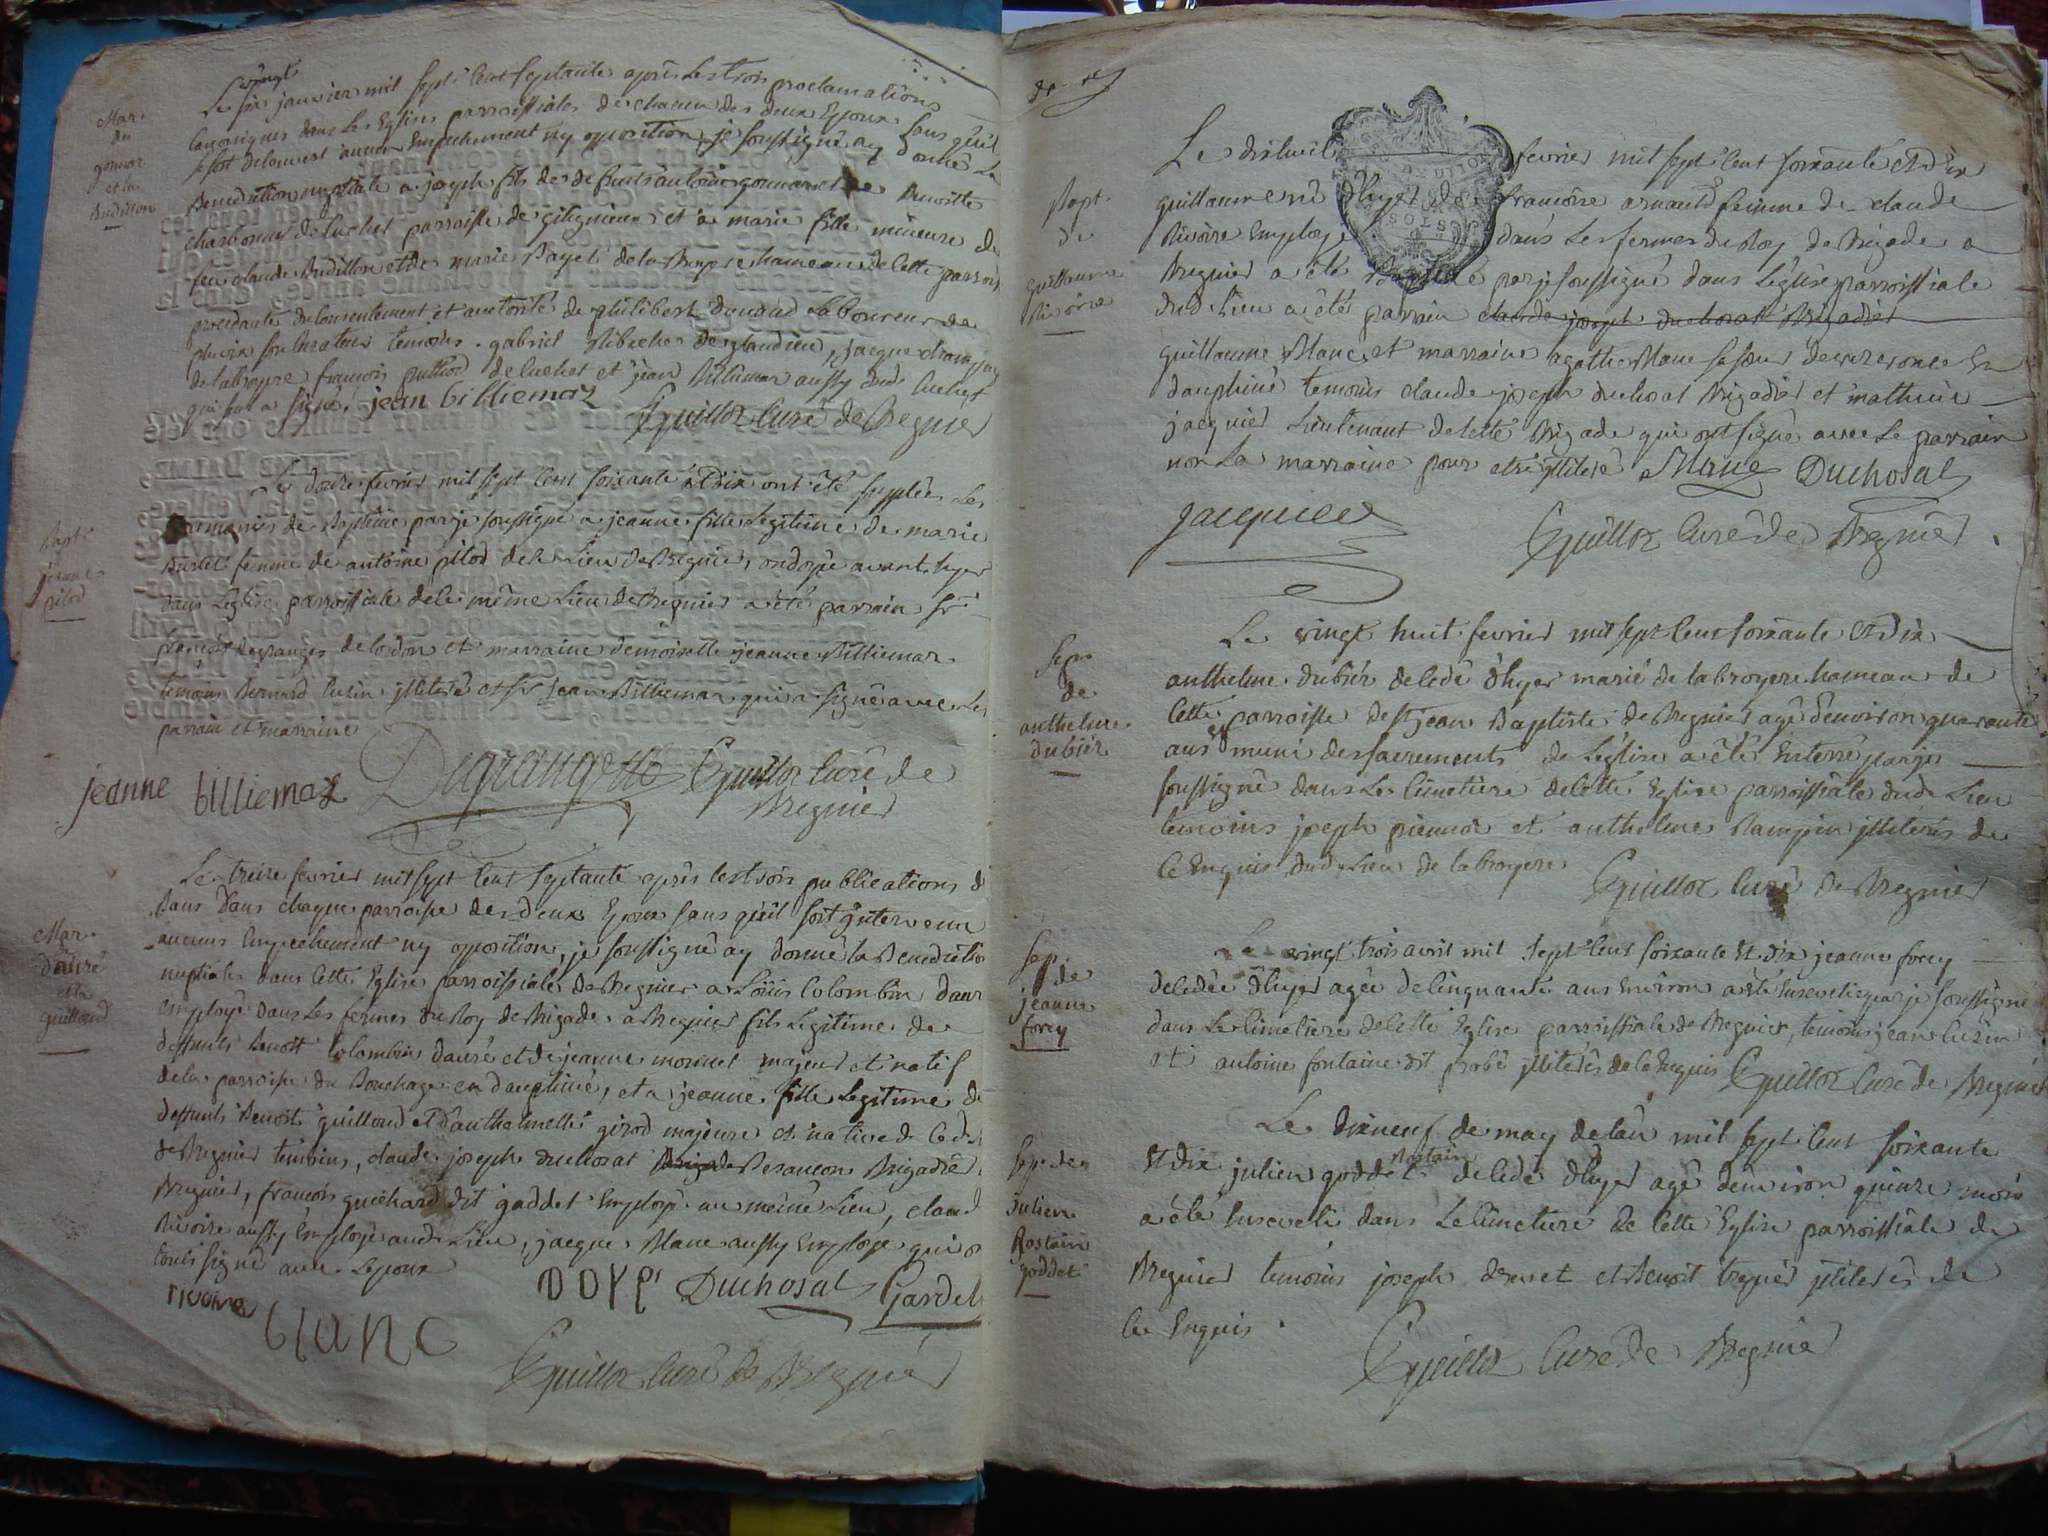 Mar.
du
gonnar
et la
Budillon
vingt
Le six janvier mil sept cent septante après les trois proclamations
canoniques dans les Eglises parroissiales de chacun des deux Epoux sans qu'il
se soit decouvert aucun Empechement ny opposition, je soussigné ay donné la
Benediction nuptiale a joseph fils de defunts antoine gonnar et de Benoitte
charbonnet de luchet parroisse de et a marie fille mineure de
feu claude Budillon et de marie Payet de la Bruyere hameau de cette parroisse
procedante du consentement et autorité de philibert laboureur de
son curateur temoins gabriel de glandieu, jacque
de la broyere françois de luchet et jean Billiemaz aussy dud. luchet
qui seul a signé. jean billiemaz
Guillot Curé de Bregnier
Bapt.
jeanne
pitod
Le douze fevrier mil sept cent soixante et Dix ont été supplées les
ceremonies de Bapteme par je soussigné a jeanne fille legitime de marie
Burlet femme de antoine pitod de ce lieu de Bregnier, ondoyée avant hyer
dans l'eglise parroissiale de ce même lieu de Bregnier a été parrain sr.
françois Degranges de cordon et marraine demoiselle jeanne Billiemaz.
temoins Bernard cuzin illiteré et sr jean Billiemaz qui a signé avec les
parrain et marraine
jeanne billiemaz Guillot Curé de
Bregnier
Mar.
dauré
et la
guilloud
Le treize fevrier mil sept cent septante après les trois publications de
Bans dans chaque parroisse des deux Epoux sans qu'il soit intervenu
aucuns Empechement ny opposition, je soussigné ay donné la Benediction
nuptiale dans cette Eglise parroissiale de Bregnier a Loüis Colombin dauré
employé dans les fermes du Roy de Brigade a Bregnier fils legitime de
deffunts Benoit Colombin dauré et de jeanne monnet majeur et natif
de la parroisse du Bouchage en dauphiné, et a jeanne fille legitime de
deffunts Benoit guilloud et d'anthelmette girod majeure et native de ce d.
de Bregnier temoins, claude joseph duchosal de Besançon Brigadié
Bregnier, françois guichard dit goddet employé au même lieu, claude
Rivoire aussy Employé aud. lieu, jacque Blanc aussy Employé qui ont
tous signé avec l'epoux
rivoire blanc Duchosal
Guillot Curé de Bregnier
Bapt.
de
guillaume
Rivoire
Le dixhuit fevrier mil sept cent soixante et Dix
guillaume né d'hyer de françoise arnaud femme de claude
Rivoire Employé dans les fermes du Roy de Brigade a
Bregnier a été Baptisé par je soussigné dans l'eglise parroissiale
dud. lieu a été parrain claude joseph duchosal Brigadier
guillaume Blanc et marraine agathe Blanc sa sœur de En
dauphiné temoins claude joseph duchosal Brigadier et mathieu
jacquier Lieutenant de cette Brigade qui ont signé avec le parrain
non la marraine pour etre illiteré Blanc Duchosal
jacquier
Guillot Curé de Bregnier
Sep.
de
anthelme
dubier
Le vingt huit fevrier mil sept cent soixante et Dix
anthelme dubier decedé d'hyer marié de la broyere hameau de
cette parroisse de St jean Baptiste de Bregnier agé d'environ quarante
ans et muni des sacrements de l'eglise a été Enterré par je
soussigné dans le cimetiere de cette Eglise parroissiale dud. Lieu
temoins joseph et anthelme illiterés de
ce Enquis dud. Lieu de la broyere
Guillot Curé de Bregnier
Sep.
de
jeanne
forey
Le vingt trois avril mil sept cent soixante et dix jeanne forey
decedée d'hyer agée de cinquante ans environ a été Ensevelie par je soussigné
dans le cimetiere de cette Eglise parroissiale de Bregnier, temoins jean cuzin
et antoine fontaine dit probé illiterés de ce Enquis Guillot Curé de Bregnier
Sep. de
julien
Rostain
goddet
Le dixneuf de may de l'an mil sept cent soixante
Rostain
et dix julien goddet decedé d'hyer agé d'environ quinze mois
a été Enseveli dans le cimetiere de cette Eglise parroissiale de
Bregnier temoins joseph et Benoit illiterés de
ce Enquis.
Guillot Curé de Bregnier